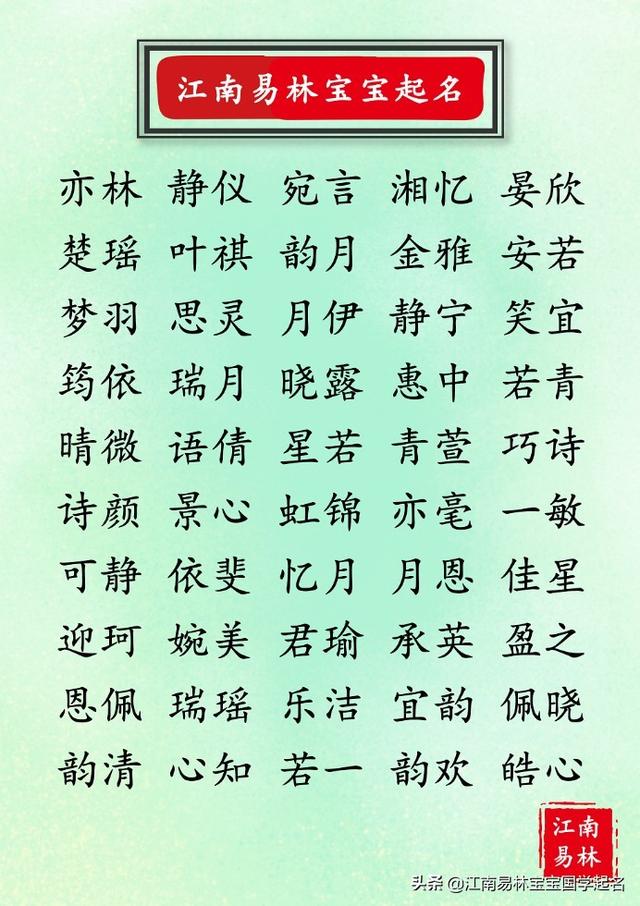 江南易林宝宝起名
亦林 静仪 宛言 湘忆 晏欣
楚瑶 叶祺 韵月 金雅 安若
梦羽 思灵 月伊 静宁 笑宜
筠依 瑞月 晓露 惠中 若青
晴微 语倩 星若 青萱 巧诗
诗颜 景心 虹锦 亦毫 一敏
可静 依斐 忆月 月恩 佳星
迎珂 婉美 君瑜 承英 盈之
恩佩 瑞瑶 乐洁 宜韵 佩晓
韵清 心知 若一 韵欢 皓心
江南
易林
头条 @江南易林宝宝国学起名